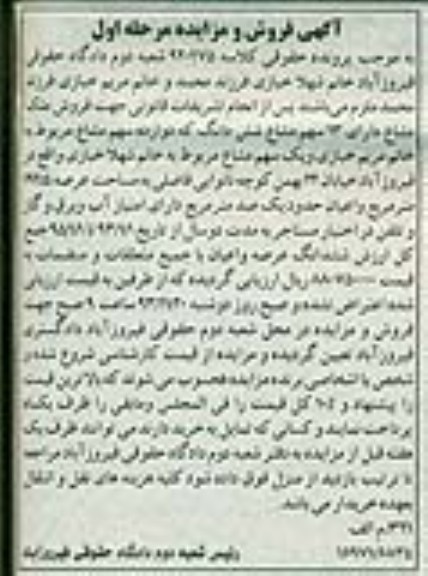 آگهی فروش و مزایده مرحله اول
به موجب پرونده حقوقی کلاسه شعبه دوم دادگاه حقوقی
فیروزآباد خانم شهلا خبازی فرزند محمد و خانم مریم خبازی فرزند
محمد ملزم می‌باشند پس از انجام تشریفات قانونی جهت فروش ملک
مشاع دارای ۱۳ سهم مشاع شش دانگ که دوازده سهم مشاع مربوط به
خانم مریم خبازی ویک سهم مشاع مربوط به خانم شهلا خبازی واقع در
فیروزآباد خیابان ۲۲ بهمن کوچه نانوایی فاضلی به مساحت عرصه
مترمربع واعیان حدود یک صد مترمربع دارای امتیاز آب وبرق و گاز
و تلفن در اختیار مستاجر به مدت دو سال از تاریخ
کل ارزش ششدانگ عرصه واعیان با جمیع متعلقات و منضمات به
قیمت ریال ارزیابی گردیده که از طرفین به قیمت ارزیابی
شده اعتراض نشده و صبح روز دوشنبه ساعت ۹ صبح جهت
فروش و مزایده در محل شعبه دوم حقوقی فیروزآباد دادگستری
فیروزآباد تعیین گردیده و مزایده از قیمت کارشناسی شروع شده و
شخص یا اشخاصی برنده مزایده محسوب می شوند که بالاترین قیمت
را پیشنهاد و ۱۰٪ کل قیمت را فی المجلس ومابقی را ظرف یکماه
پرداخت نمایند و کسانی که تمایل به خرید دارند می توانند ظرف یک
هفته قبل از مزایده به دفتر شعبه دوم دادگاه حقوقی فیروزآباد مراجعه
تا ترتیب بازدید از منزل فوق داده شود کلیه هزینه های نقل و انتقال
بعهده خریدار می باشد.
م الف
رئیس شعبه دوم دادگاه حقوقی فیروزآباد